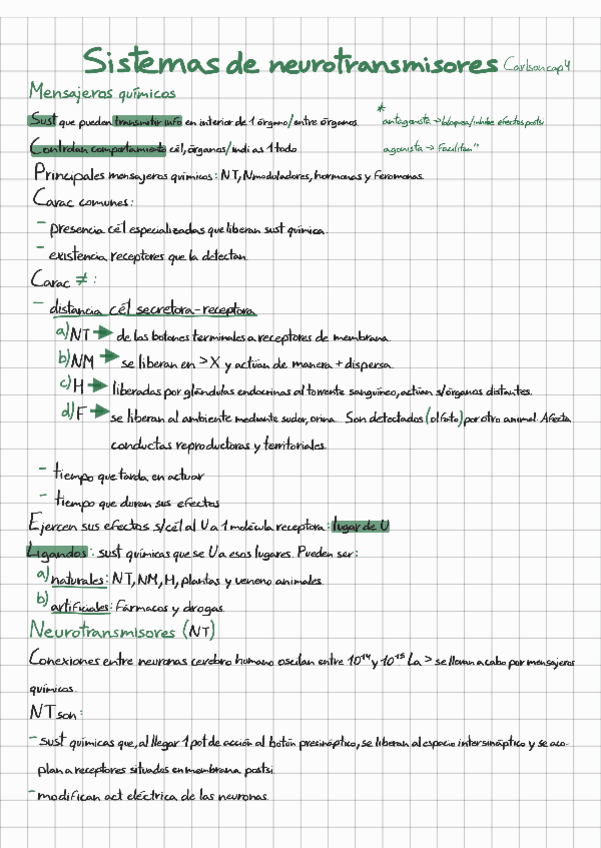 Sistemas de neurotransmisores Carlson cap 4
Mensajeros químicos
Sust que pueden transmitir info en interior de 1 órgano/entre órganos.
* antagonista → bloquea/inhibe efectos posts
Controlan comportamiento cél, órganos/indi as 1 todo
agonista → facilitan "
Principales mensajeros químicos: NT, Nmoduladores, hormonas y feromonas.
Carac comunes:
- presencia cél especializadas que liberan sust química.
- existencia receptores que la detectan.
Carac ≠:
- distancia cél secretora-receptora
a) NT → de los botones terminales a receptores de membrana.
b) NM → se liberan en > X y actúan de manera + dispersa.
c) H → liberadas por glándulas endocrinas al torrente sanguíneo, actúan s/órganos distantes.
d) F → se liberan al ambiente mediante sudor, orina. Son detectados (olfato) por otro animal. Afecta
conductas reproductoras y territoriales.
- tiempo que tarda en actuar
- tiempo que duran sus efectos
Ejercen sus efectos s/cél al U a 1 molécula receptora: lugar de U
Ligandos: sust químicas que se U a esos lugares. Pueden ser:
a) naturales: NT, NM, H, plantas y veneno animales.
b) artificiales: Fármacos y drogas.
Neurotransmisores (NT)
Conexiones entre neuronas cerebro humano oscilan entre 10¹⁴ y 10¹⁵ La > se llevan a cabo por mensajeros
químicos.
NT son:
- sust químicas que, al llegar 1 pot de acción al botón presináptico, se liberan al espacio intersináptico y se aco-
plan a receptores situados en membrana postsi.
- modifican act eléctrica de las neuronas.